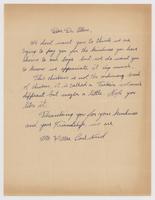 Dear Dr. Allen,
We don't want you to think we are
trying to pay you for the kindness you have
shown to our boys but we do want you
to know we appreciate it very much.
This chicken is not the ordinary kind
of chicken, it is called a Turken
different but maybe a little. Hope you
like it.
Thanking you for your kindness
and your friendship to us
Mr. Miller